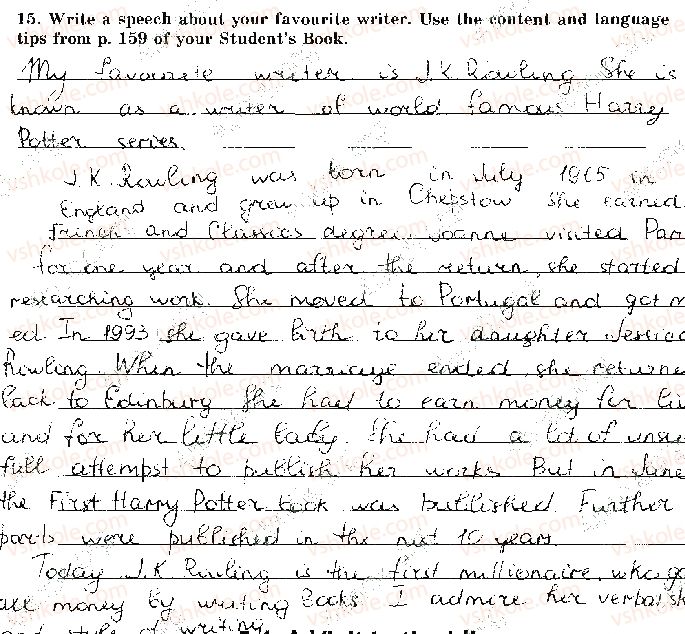 15. Write a speech about your favourite writer. Use the content and language
tips from p. 159 of your Student's Book.
My favourete writer is J.K. Rowling She is
known as a writer of world famous Harry
Potter series.
J.K. Rowling was born in July 1965 in
England and grew up in Chepstow she earned
french and Classics degree Joanne visited Par
for one year and after the return, she started
researching work. She moved to Portugal and got m
ed. In 1993 she gave birth to her daughter Jessica
Rowling. When the marriage ended, she returne
back to Edinburg She had to earn money for li
and for her little baby. She had a lot of unsu
full attempst to publish her works But in June
the First Harry Potter book was published. Further
parts were published in the nxt 10 years.
Today J.K. Rowling is the first millionaire, who go
all money by writing books I admire her verbal sk
and style of writing
vshkole.com